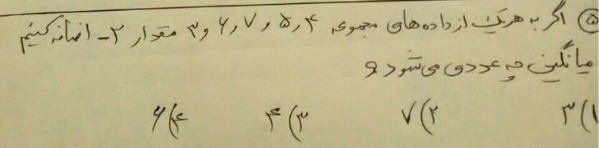 ۵) اگر به هر یک از داده های مجموعه ۴ر۵ر۷ر۶ و ۳ مقدار ۲- اضافه کنیم
میانگین چه عددی می شود؟
۱) ۳ ۲) ۷ ۳) ۴ ۴) ۶